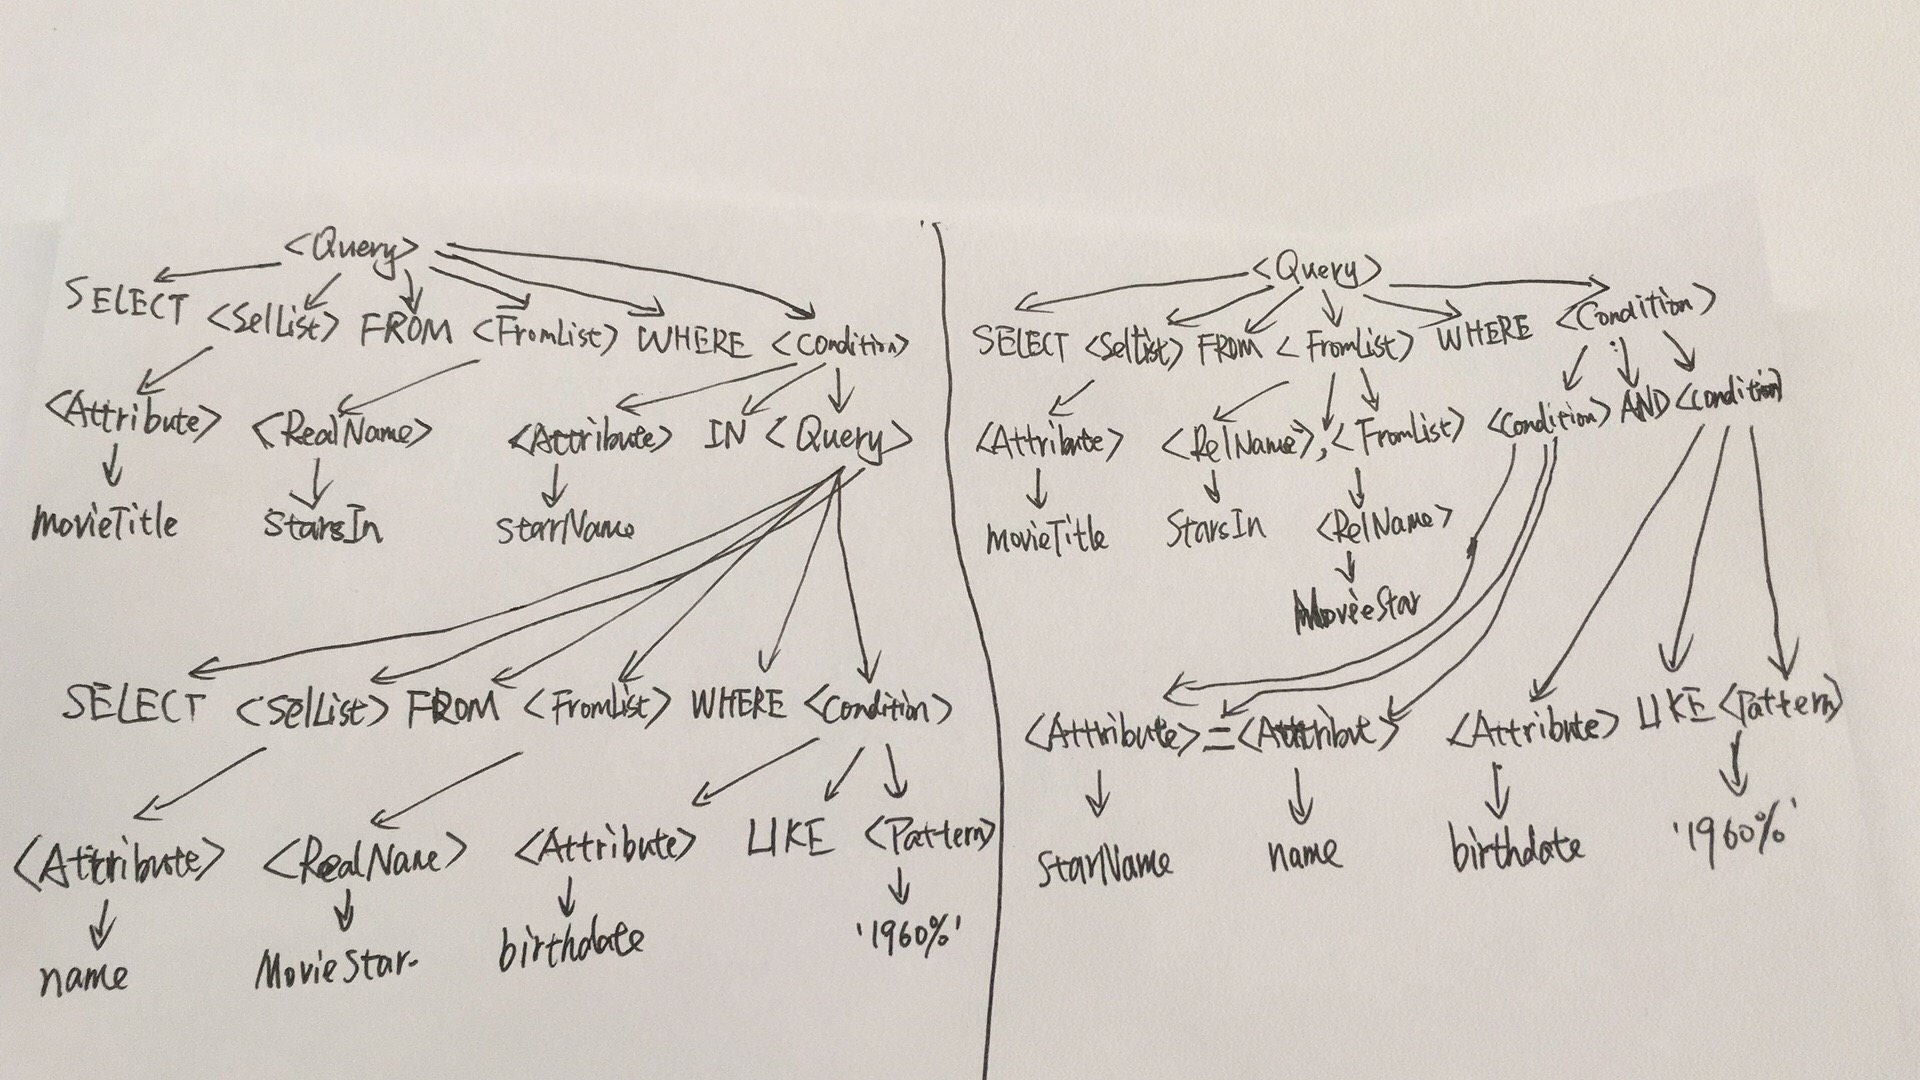 <Query>
SELECT <SelList> FROM <FromList> WHERE <Condition>
<Attribute> <RealName> <Attribute> IN <Query>
movieTitle StarsIn starName
SELECT <SelList> FROM <FromList> WHERE <Condition>
<Attribute> <RealName> <Attribute> LIKE <Pattern>
name MovieStar birthdate '1960%'
<Query>
SELECT <SelList> FROM <FromList> WHERE <Condition>
<Attribute> <RelName>, <FromList> <Condition> AND <Condition>
movieTitle StarsIn <RelName>
MovieStar
<Attribute> = <Attribut> <Attribute> LIKE <Pattern>
starName name birthdate '1960%'